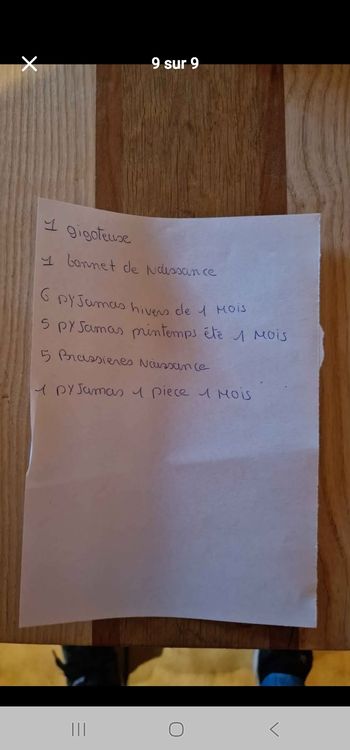 9 sur 9
1 gigoteuse
1 bonnet de naissance
6 pyjamas hivers de 1 mois
5 pyjamas printemps été 1 mois
5 Brassieres naissance
1 pyjamas 1 piece 1 mois